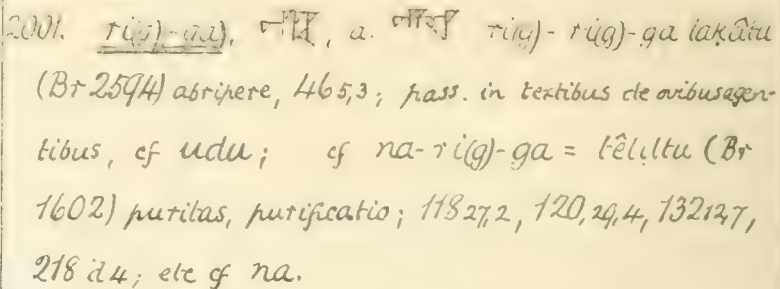 2001. ri(g)-ga), a. ri(g)-ri(g)-ga laḳâtu
(Br 2594) abripere, 465,3; pass. in textibus de ovibus agen-
tibus, cf udu; cf na-ri(g)-ga = têliltu (Br
1602) puritas, purificatio; 118 27,2, 120,29,4, 132 12,7,
218 d 4; etc cf na.